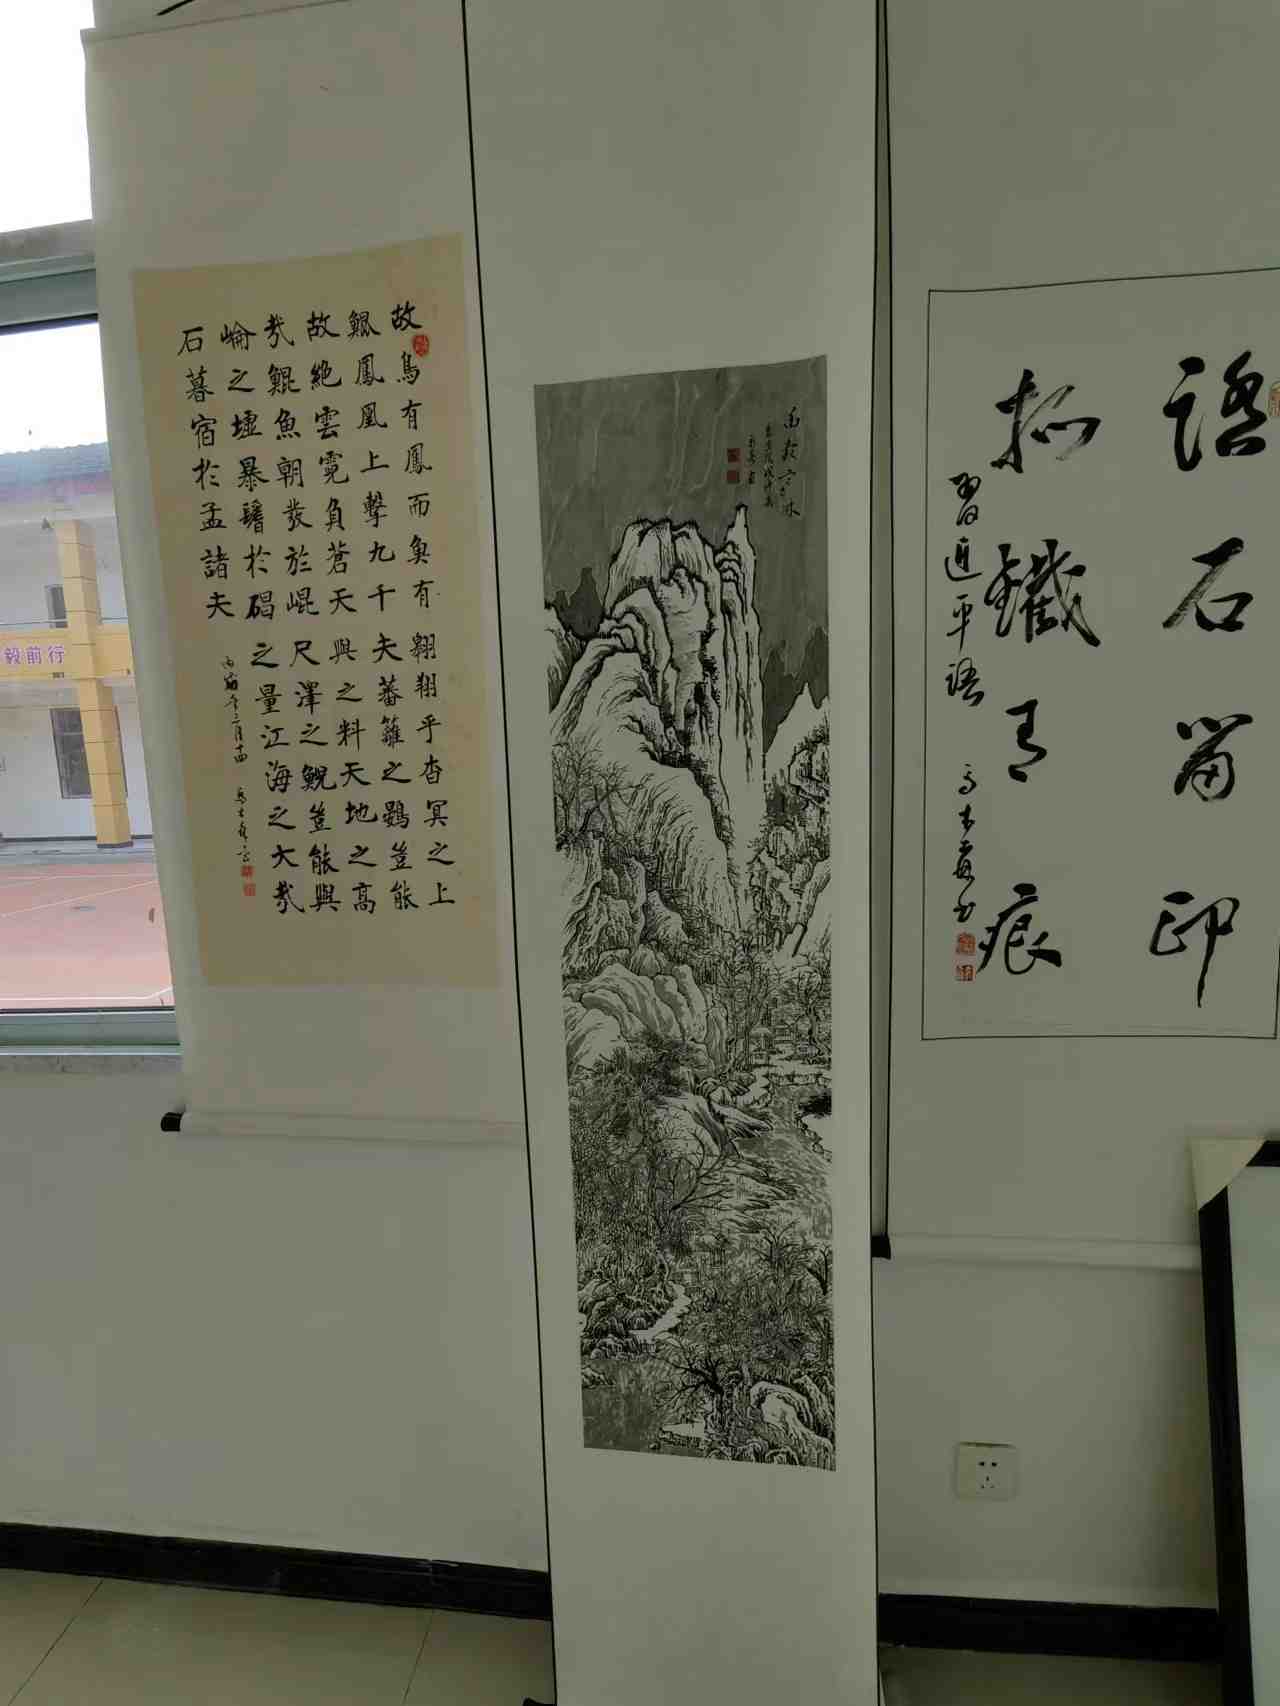 故鳥有鳳而魚有翱翔乎杳冥之上
鯤鳳凰上擊九千夫蕃籬之鷃豈能
故絶雲霓負蒼天與之料天地之高
哉鯤魚朝發於崐尺澤之鯢豈能與
崘之墟暴鬐於碣之量江海之大哉
石暮宿於孟諸夫
踏石留印
抓鐵有痕
習近平語
毅前行